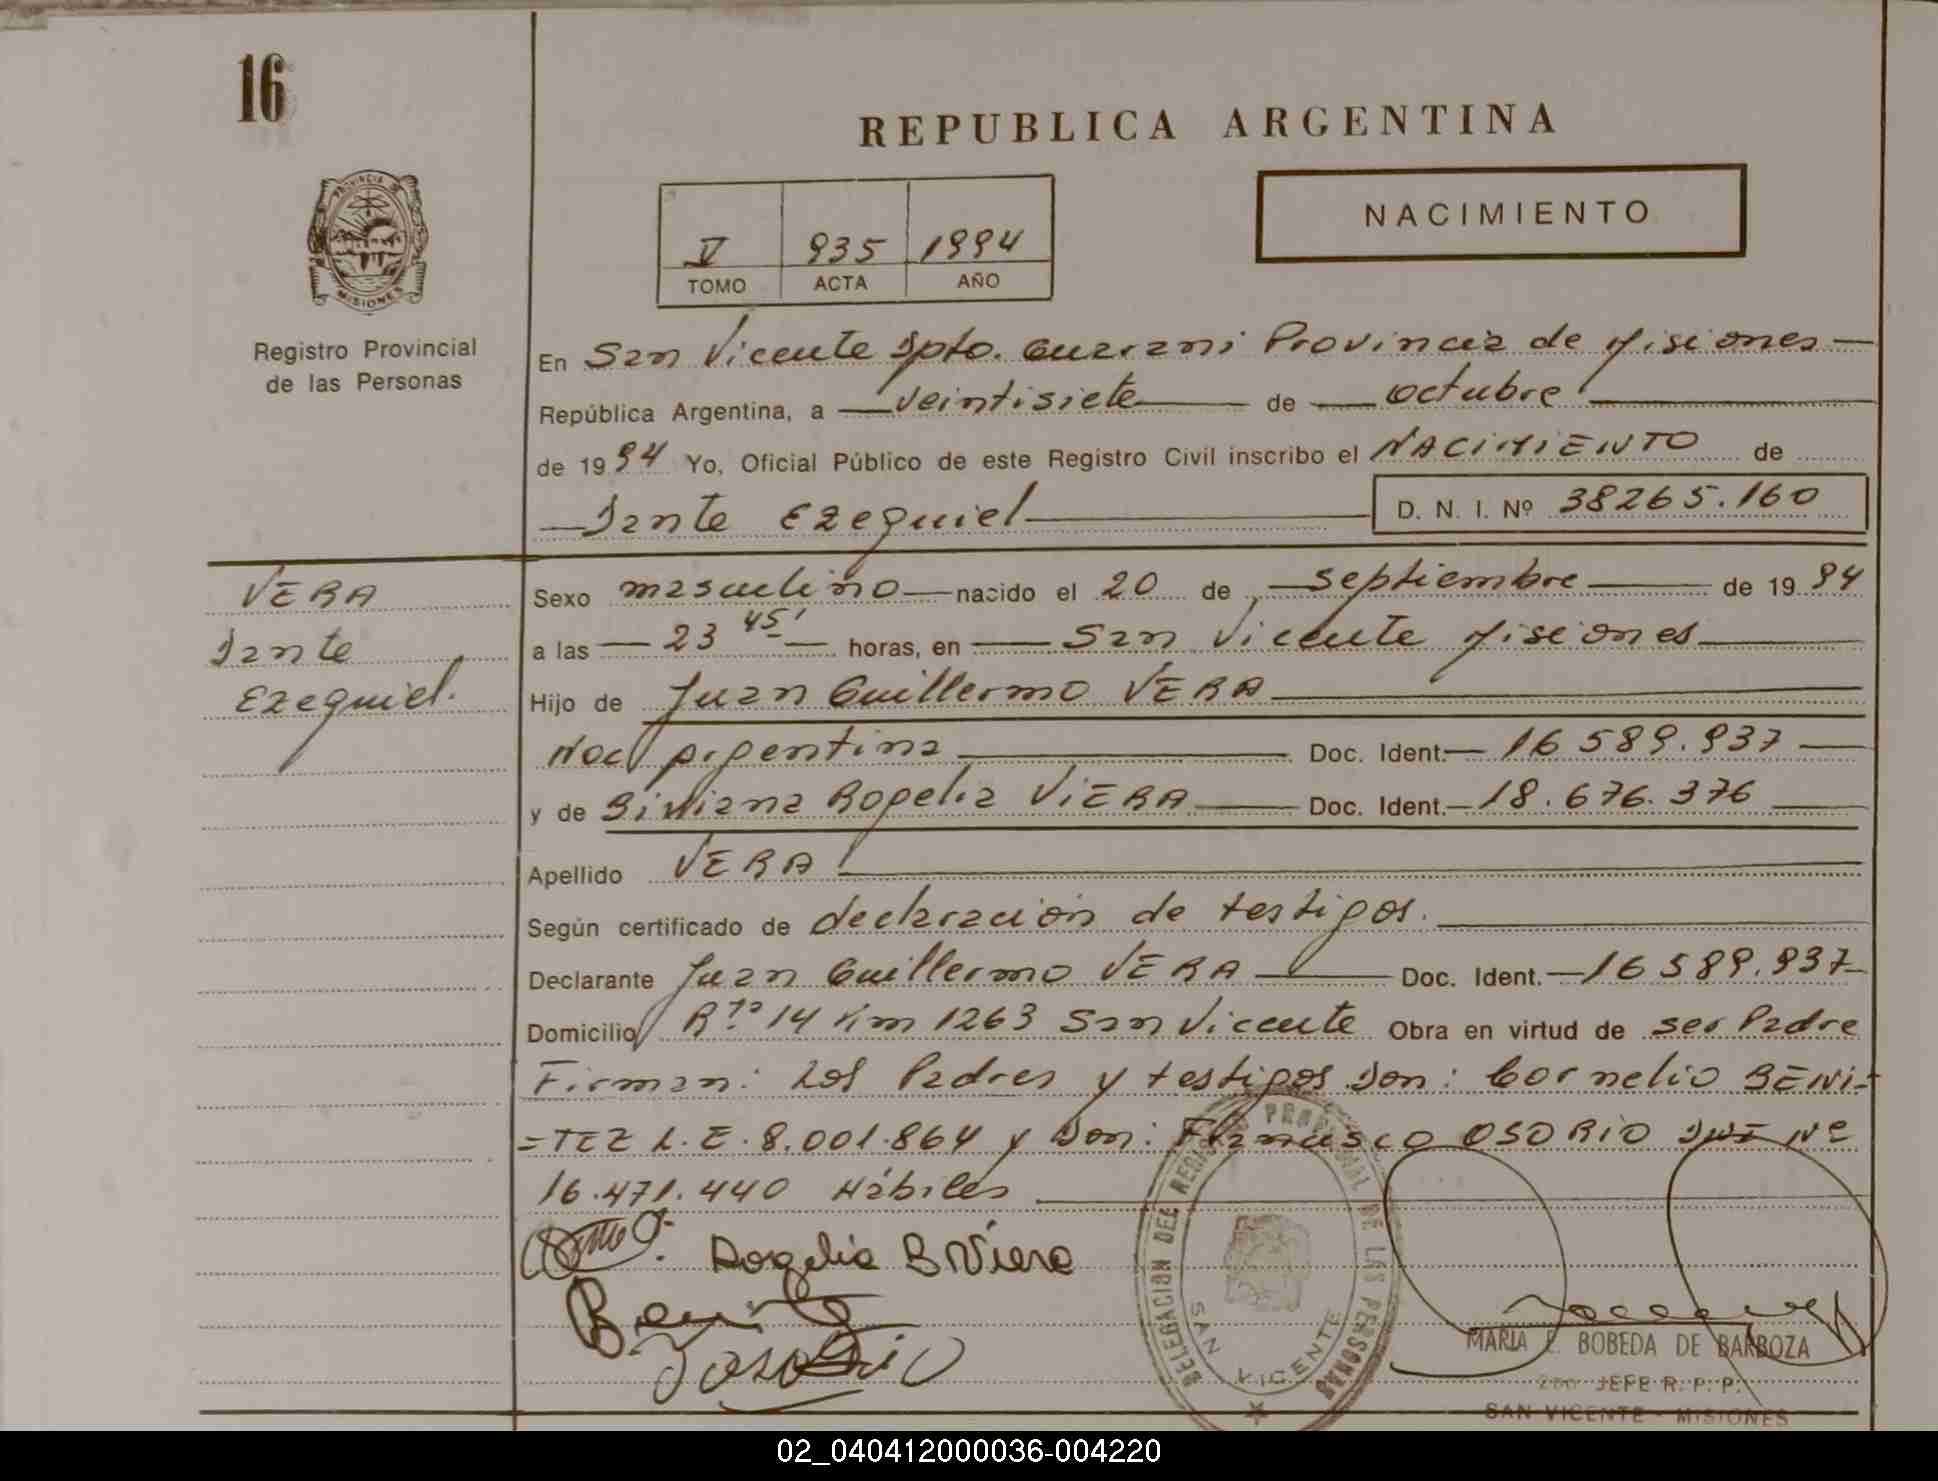 16
REPUBLICA ARGENTINA
PROVINCIA DE MISIONES
Registro Provincial
de las Personas
V 935 1994
TOMO ACTA AÑO
NACIMIENTO
En San Vicente Dpto. Guarani Provincia de Misiones
República Argentina, a veintisiete de octubre
de 1994 Yo, Oficial Público de este Registro Civil inscribo el NACIMIENTO de
Dante Ezequiel D. N. I. Nº 38265.160
VERA
Dante
Ezequiel.
Sexo masculino nacido el 20 de septiembre de 1994
a las 23 45' horas, en San Vicente Misiones
Hijo de Juan Guillermo VERA
Nac argentina Doc. Ident. 16 589.937
y de Biviana Rogelia ViERA Doc. Ident. 18.676.376
Apellido VERA
Según certificado de declaración de testigos.
Declarante Juan Guillermo VERA Doc. Ident. 16 589.937
Domicilio Rta 14 Km 1263 San Vicente Obra en virtud de ser Padre
Firman: Los Padres y testigos Don: Cornelio BENI-
=TEZ L.E. 8.001.864 y Don: Francisco OSORIO DNI Nº
16.471.440 Hábiles
Rogelia B Viera
Benite
DELEGACION DEL REGISTRO PROVINCIAL DE LAS PERSONAS
SAN VICENTE
MARIA E. BOBEDA DE BARBOZA
2do JEFE R. P. P.
SAN VICENTE - MISIONES
02_040412000036-004220